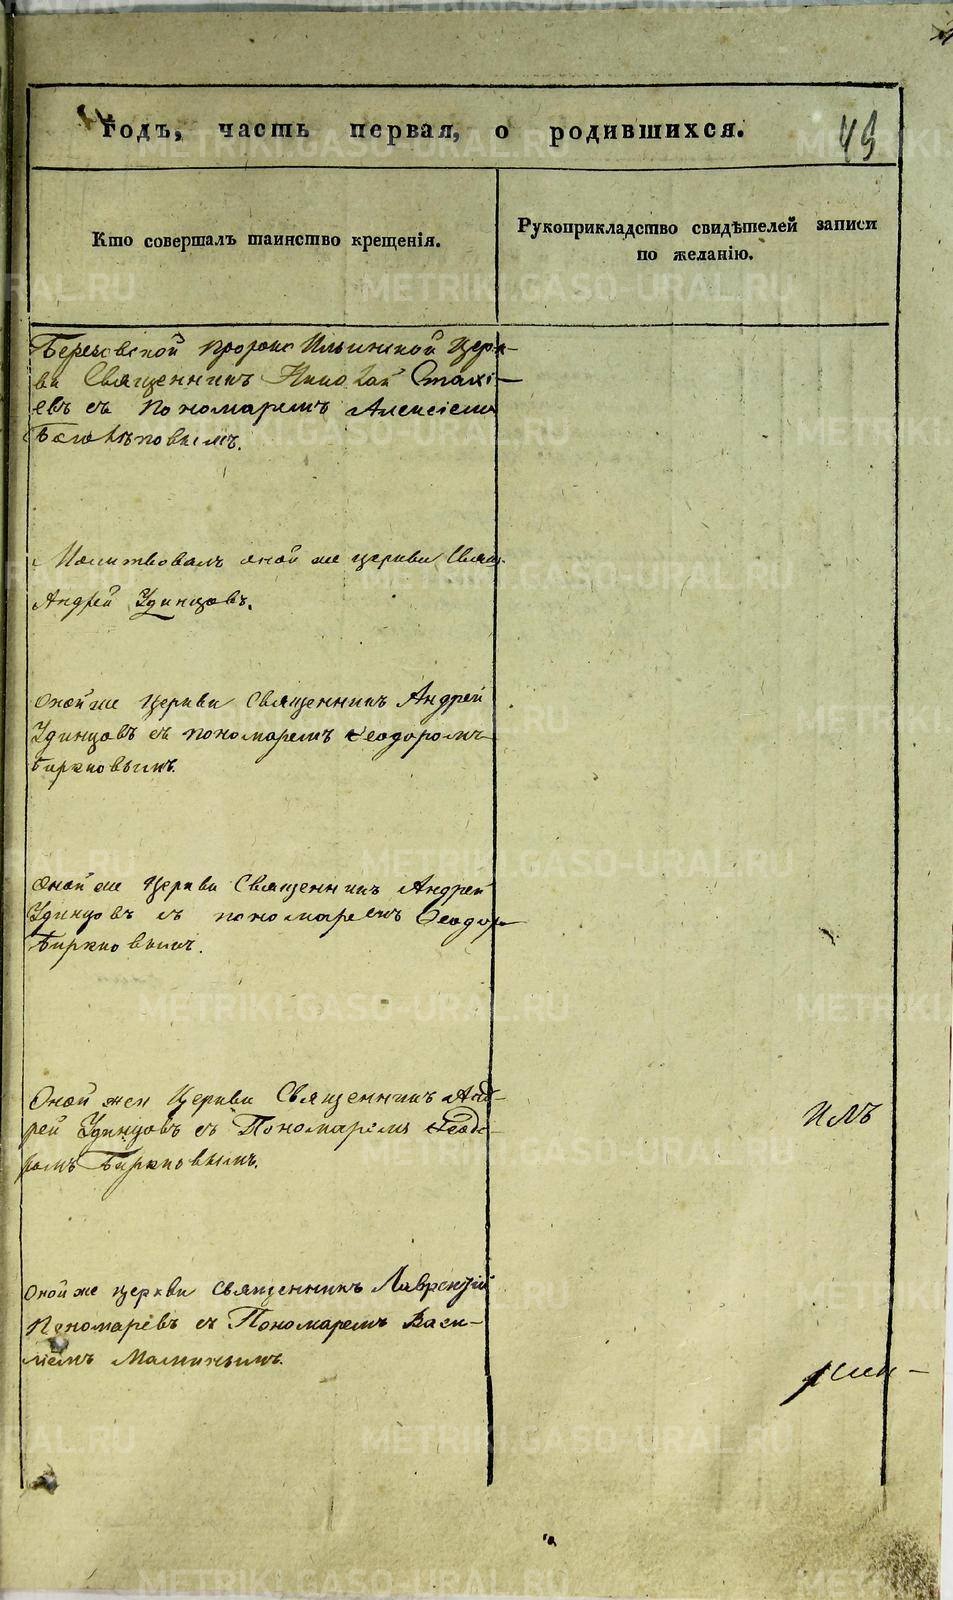 годъ, часть первая, о родившихся.
49
Кто совершалъ таинство крещенія.
Рукоприкладство свидѣтелей записи
по желанію.
Березовской Пророко Ильинской Церк-
ви Священникъ Николай Стахі-
евъ съ Пономаремъ Алексіемъ
Молитвовалъ оной же церкви Свящ.
Андрей Удинцовъ.
Оной же Церкви Священникъ Андрей
Удинцовъ съ пономаремъ Ѳеодоромъ
Бирюковымъ.
Оной же Церкви Священникъ Андрей
Удинцовъ съ пономаремъ Ѳеодоро
Бирюковымъ.
Оной же Церкви Священникъ Анд-
рей Удинцовъ съ Пономаремъ Ѳеодо
ромъ Бирюковымъ.
Оной же церкви Священникъ Лаврентій
Пономаревъ съ Пономаремъ Васи-
ліемъ Маминымъ.
METRIKI.GASO-URAL.RU